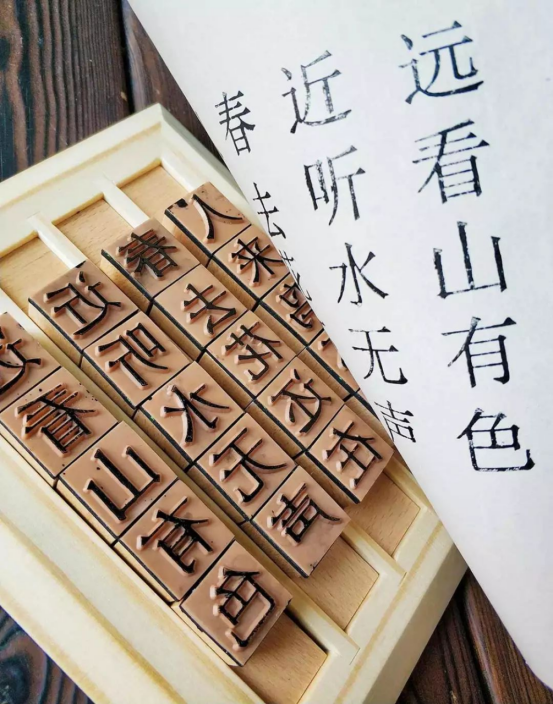 远看山有色
近听水无声
春去
远看山有色
近听水无声
春去花还在
人来